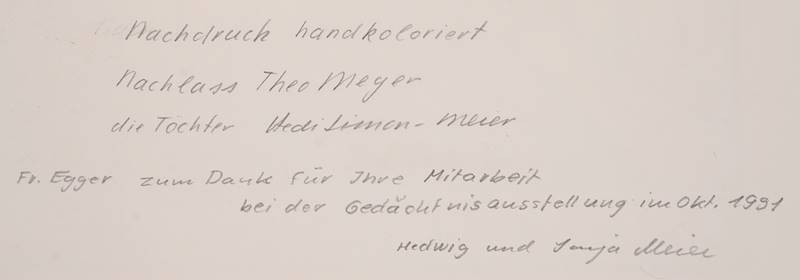 Nachdruck handkoloriert
Nachlass Theo Meyer
die Tochter Hedi Simon-Meier
Fr. Egger zum Dank für Ihre Mitarbeit
bei der Gedächtnisausstellung im Okt. 1991
Hedwig und Sonja Meier